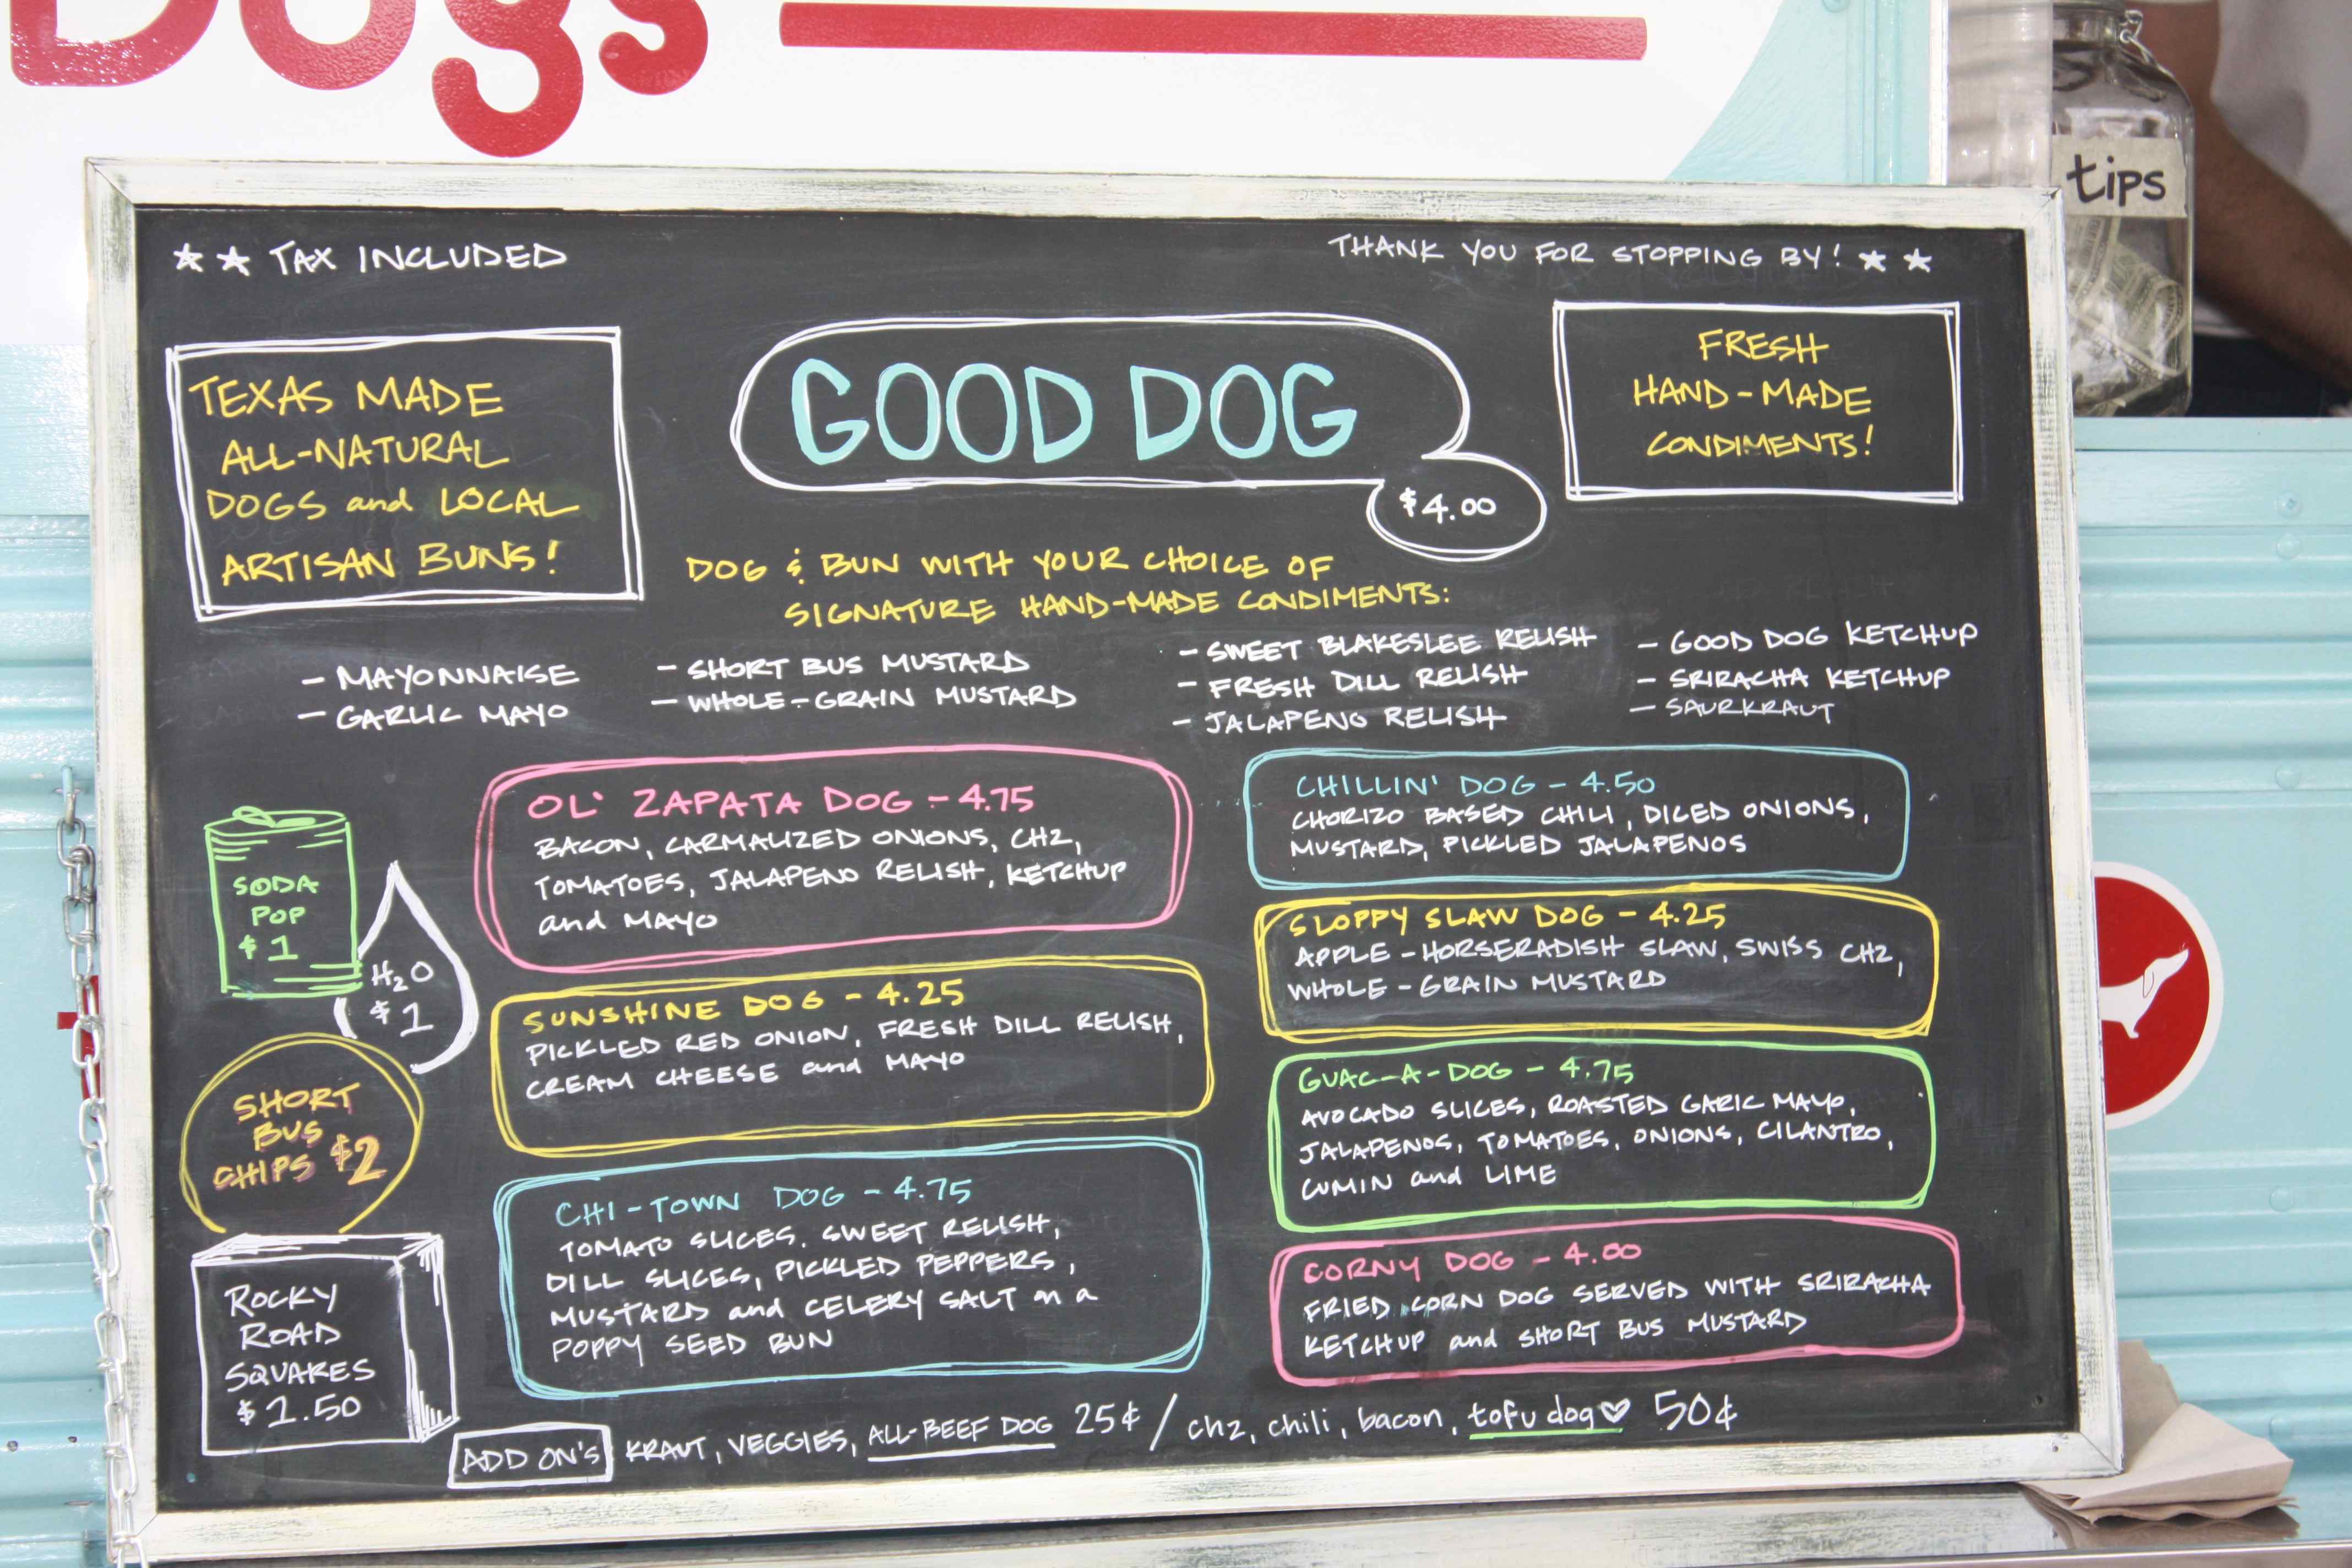 Dogs
tips
★ ★ TAX INCLUDED
THANK YOU FOR STOPPING BY! ★ ★
TEXAS MADE
ALL-NATURAL
DOGS and LOCAL
ARTISAN BUNS!
GOOD DOG
$4.00
FRESH
HAND-MADE
CONDIMENTS!
DOG & BUN WITH YOUR CHOICE OF
SIGNATURE HAND-MADE CONDIMENTS:
- MAYONNAISE
- GARLIC MAYO
- SHORT BUS MUSTARD
- WHOLE-GRAIN MUSTARD
- SWEET BLAKESLEE RELISH
- FRESH DILL RELISH
- JALAPENO RELISH
- GOOD DOG KETCHUP
- SRIRACHA KETCHUP
- SAURKRAUT
SODA
POP
$1
H₂O
$1
SHORT
BUS
CHIPS $2
ROCKY
ROAD
SQUARES
$1.50
OL' ZAPATA DOG - 4.75
BACON, CARMALIZED ONIONS, CHZ,
TOMATOES, JALAPENO RELISH, KETCHUP
and MAYO
SUNSHINE DOG - 4.25
PICKLED RED ONION, FRESH DILL RELISH,
CREAM CHEESE and MAYO
CHI-TOWN DOG - 4.75
TOMATO SLICES, SWEET RELISH,
DILL SLICES, PICKLED PEPPERS,
MUSTARD and CELERY SALT on a
POPPY SEED BUN
CHILLIN' DOG - 4.50
CHORIZO BASED CHILI, DICED ONIONS,
MUSTARD, PICKLED JALAPENOS
SLOPPY SLAW DOG - 4.25
APPLE-HORSERADISH SLAW, SWISS CHZ,
WHOLE-GRAIN MUSTARD
GUAC-A-DOG - 4.75
AVOCADO SLICES, ROASTED GARIC MAYO,
JALAPENOS, TOMATOES, ONIONS, CILANTRO,
CUMIN and LIME
CORNY DOG - 4.00
FRIED CORN DOG SERVED WITH SRIRACHA
KETCHUP and SHORT BUS MUSTARD
ADD ON'S KRAUT, VEGGIES, ALL-BEEF DOG 25¢ / chz, chili, bacon, tofu dog ♡ 50¢